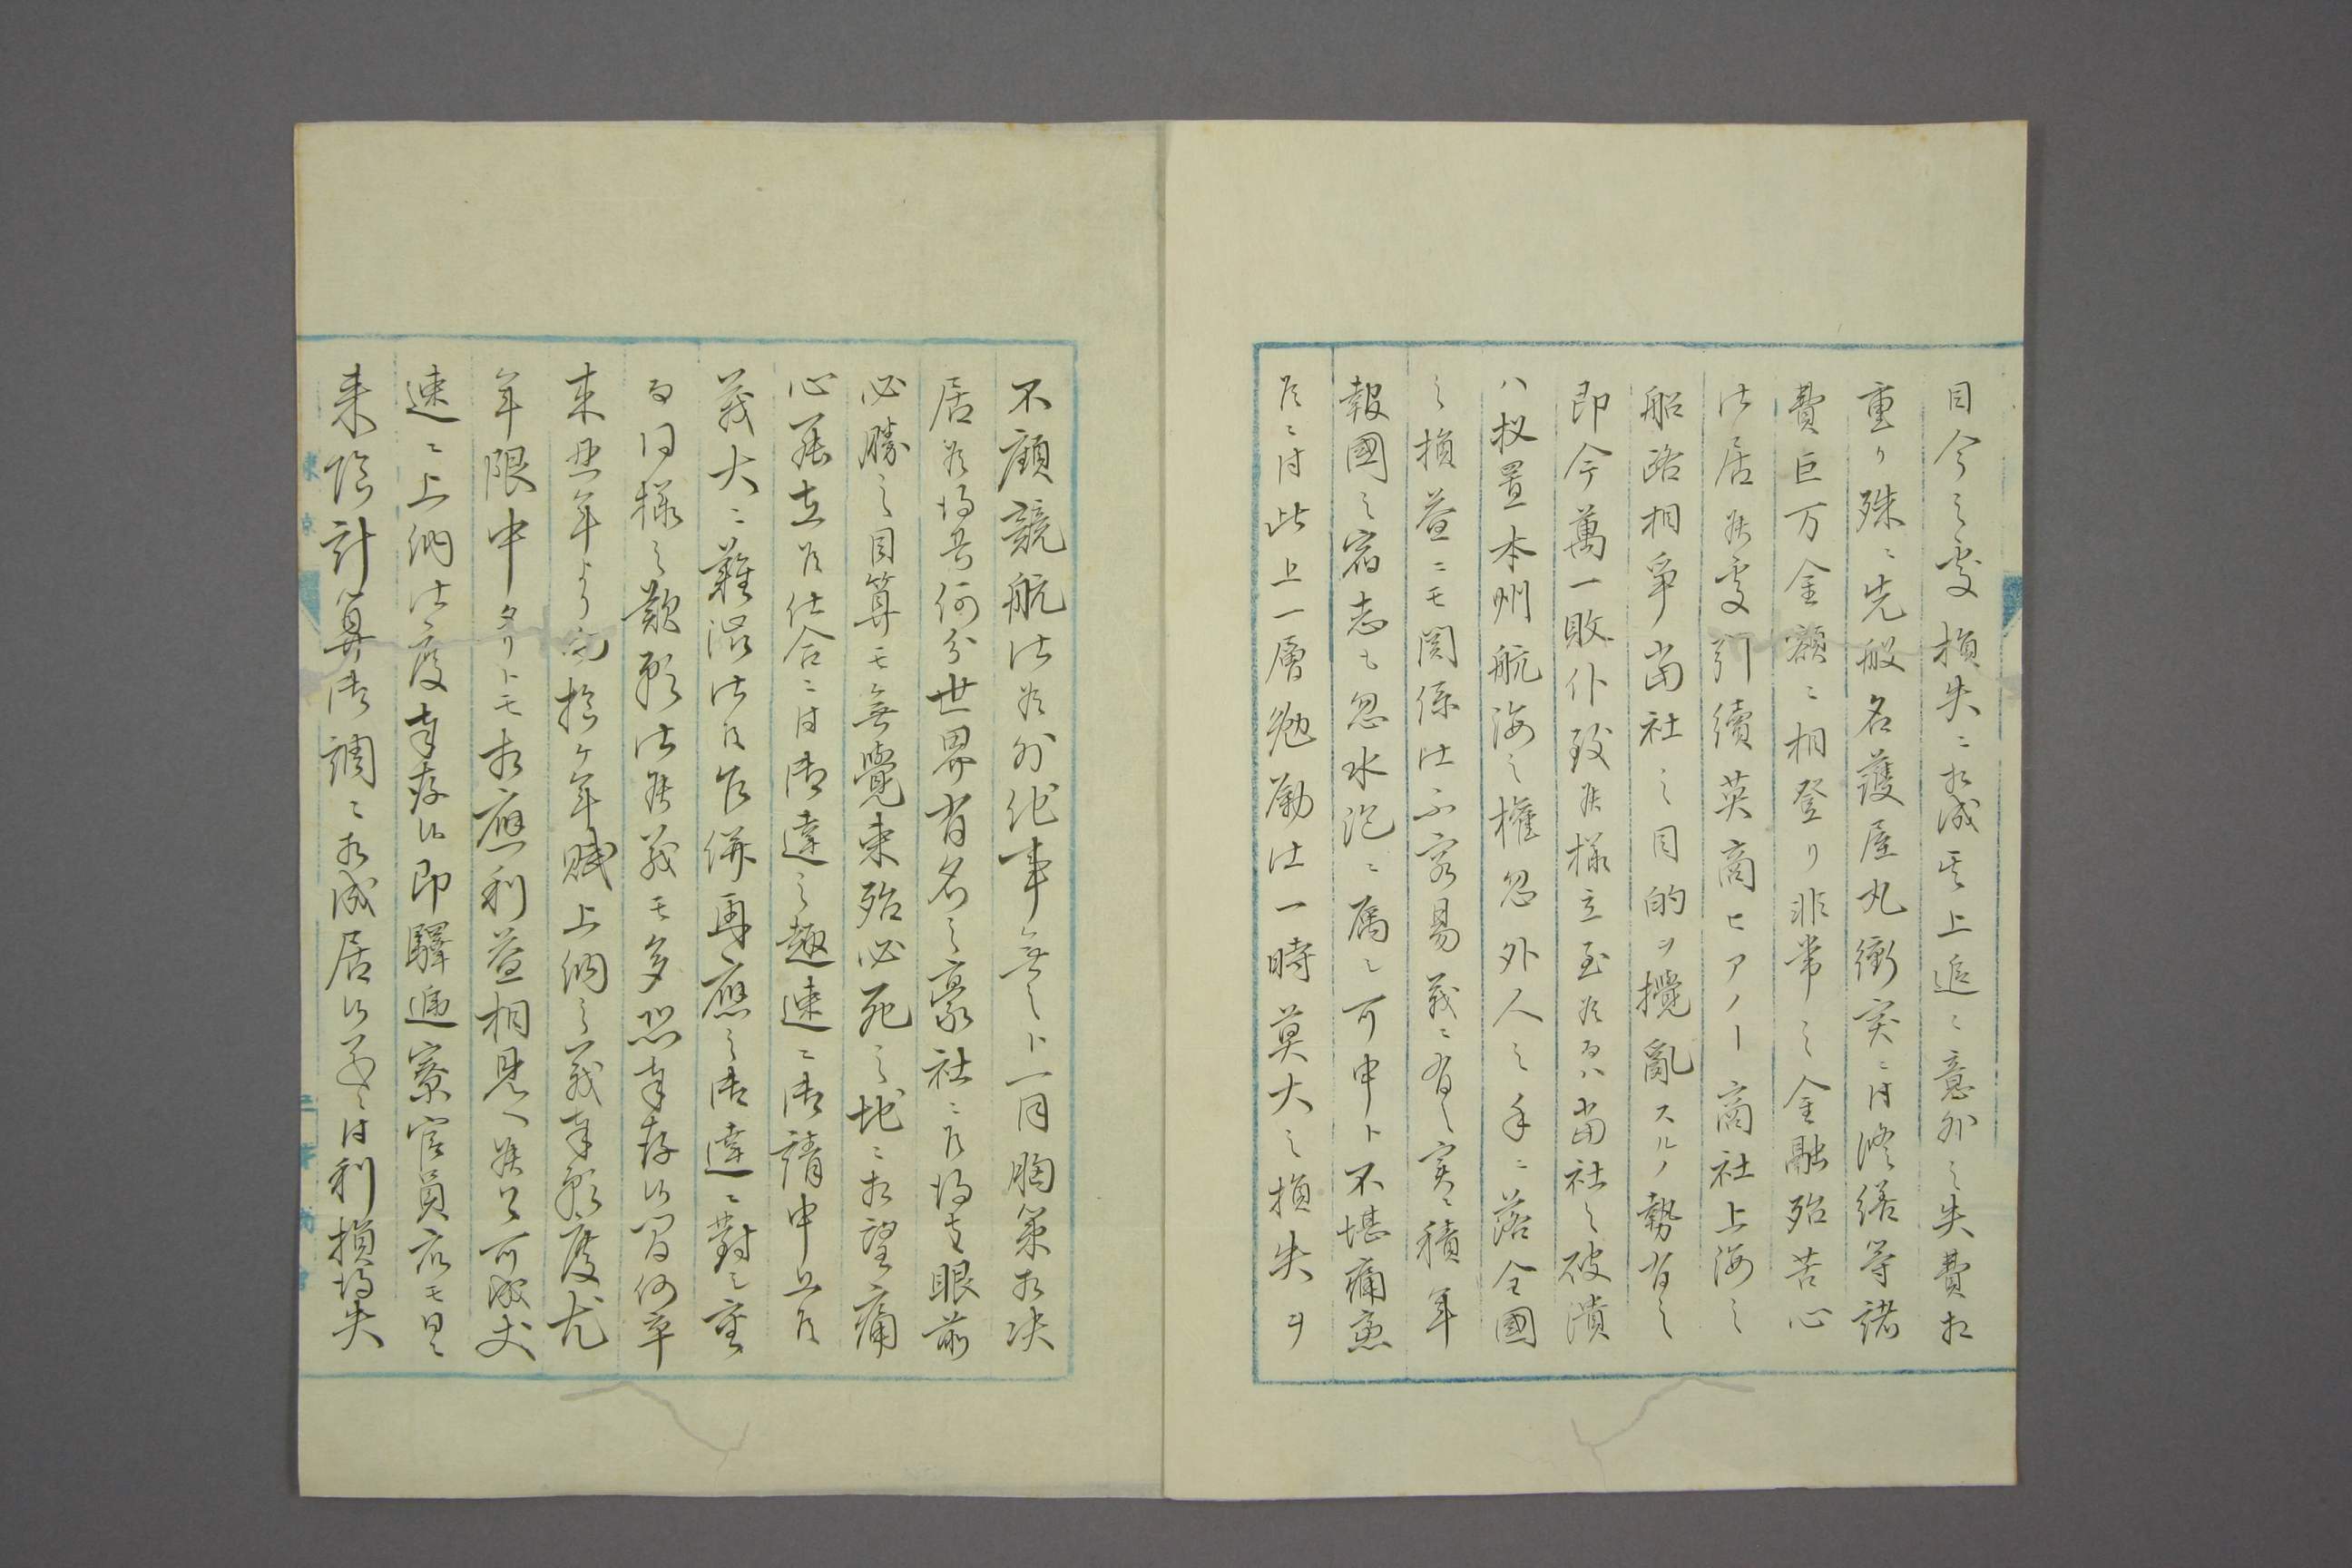 目今之處損失ニ相成其上追々意外之失費相
重リ殊ニ先般名護屋丸衝突ニ付修繕等諸
費巨万金額ニ相登リ非常之金融殆苦心
仕居候處引續英商ヒアノー商社上海之
船路相爭當社之目的ヲ攪亂スルノ勢有之
即今萬一敗仆致候様立至候而ハ當社之破潰
ハ扨置本州航海之權忽外人之手ニ落全國
之損益ニモ関係仕不容易義ニ有之実ニ積年
報國之宿志も忽水泡ニ属シ可申ト不堪痛慮
候ニ付此上一層勉勵仕一時莫大之損失ヲ
不顧競航仕候外他事無之ト一同胸策相决
居候得共何分世界有名之豪社ニ候得者眼前
必勝之目算モ無覺束殆必死之地ニ相望痛
心罷在候仕合ニ付御達之趣速ニ御請申上候
義大ニ難澁仕候乍併再應之御達ニ對シ重
而同様之歎願仕候義モ多恐奉存候間何卒
来丑年より向拾ケ年賦上納之義奉願度尤
年限中タリトモ相應利益相見ヘ候ハヽ可成丈
速ニ上納仕度奉存候即驛逓寮官員衆モ日々
来臨計算御調ニ相成居候義ニ付利損得失